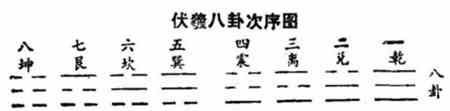 伏羲八卦次序图
八坤 七艮 六坎 五巽 四震 三离 二兑 一乾
八卦